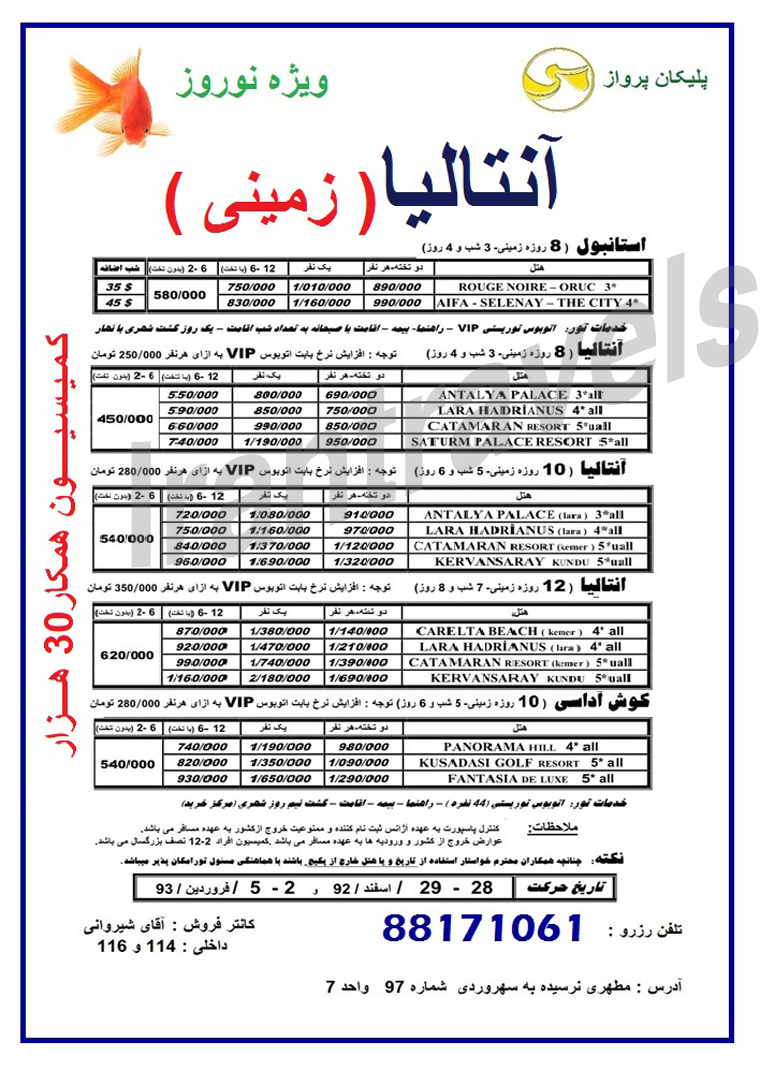 پلیکان پرواز
ویژه نوروز
آنتالیا ( زمینی )
استانبول ( 8 روزه زمینی- 3 شب و 4 روز)
هتل | دو تخته-هر نفر | یک نفر | 12 -6 (با تخت) | 6 -2 (بدون تخت) | شب اضافه
ROUGE NOIRE – ORUC 3* | 890/000 | 1/010/000 | 750/000 | 580/000 | 35 $
AIFA - SELENAY – THE CITY 4* | 990/000 | 1/160/000 | 830/000 | 45 $
خدمات تور: اتوبوس توریستی VIP – راهنما- بیمه – اقامت با صبحانه به تعداد شب اقامت – یک روز گشت شهری با نهار
آنتالیا ( 8 روزه زمینی- 3 شب و 4 روز) توجه : افزایش نرخ بابت اتوبوس VIP به ازای هرنفر 250/000 تومان
هتل | دو تخته-هر نفر | یک نفر | 12 -6 (با تخت) | 6 -2 (بدون تخت)
ANTALYA PALACE 3*all | 690/000 | 800/000 | 550/000 | 450/000
LARA HADRIANUS 4* all | 750/000 | 850/000 | 590/000
CATAMARAN RESORT 5*uall | 850/000 | 990/000 | 660/000
SATURM PALACE RESORT 5*all | 950/000 | 1/190/000 | 740/000
آنتالیا ( 10 روزه زمینی- 5 شب و 6 روز) توجه : افزایش نرخ بابت اتوبوس VIP به ازای هرنفر 280/000 تومان
هتل | دو تخته-هر نفر | یک نفر | 12 -6 (با تخت) | 6 -2 (بدون تخت)
ANTALYA PALACE (lara) 3*all | 910/000 | 1/080/000 | 720/000 | 540/000
LARA HADRİANUS (lara) 4*all | 970/000 | 1/160/000 | 750/000
CATAMARAN RESORT (kemer) 5*uall | 1/120/000 | 1/370/000 | 840/000
KERVANSARAY KUNDU 5*uall | 1/320/000 | 1/690/000 | 960/000
آنتالیا ( 12 روزه زمینی- 7 شب و 8 روز) توجه : افزایش نرخ بابت اتوبوس VIP به ازای هرنفر 350/000 تومان
هتل | دو تخته-هر نفر | یک نفر | 12 -6 (با تخت) | 6 -2 (بدون تخت)
CARELTA BEACH ( kemer ) 4* all | 1/140/000 | 1/380/000 | 870/000 | 620/000
LARA HADRİANUS (lara) 4* all | 1/210/000 | 1/470/000 | 920/000
CATAMARAN RESORT (kemer) 5*uall | 1/390/000 | 1/740/000 | 990/000
KERVANSARAY KUNDU 5*uall | 1/690/000 | 2/180/000 | 1/160/000
کوش آداسی ( 10 روزه زمینی- 5 شب و 6 روز) توجه : افزایش نرخ بابت اتوبوس VIP به ازای هرنفر 280/000 تومان
هتل | دو تخته-هر نفر | یک نفر | 12 -6 (با تخت) | 6 -2 (بدون تخت)
PANORAMA HILL 4* all | 980/000 | 1/190/000 | 740/000 | 540/000
KUSADASI GOLF RESORT 5* all | 1/090/000 | 1/350/000 | 820/000
FANTASIA DE LUXE 5* all | 1/290/000 | 1/650/000 | 930/000
خدمات تور: اتوبوس توریستی (44 نفره ) – راهنما – بیمه – اقامت – گشت نیم روز شهری (مرکز خرید)
ملاحظات: کنترل پاسپورت به عهده آژانس ثبت نام کننده و ممنوعیت خروج ازکشور به عهده مسافر می باشد.
عوارض خروج از کشور و ورودیه ها به عهده مسافر می باشد .کمیسیون افراد 2-12 نصف بزرگسال می باشد.
نکته: چنانچه همکاران محترم خواستار استفاده از تاریخ و یا هتل خارج از پکیج باشند با هماهنگی مسئول تورامکان پذیر میباشد.
تاریخ حرکت | 28 - 29 / اسفند / 92 و 2 - 5 / فروردین / 93
تلفن رزرو : 88171061
کانتر فروش : آقای شیروانی
داخلی : 114 و 116
آدرس : مطهری نرسیده به سهروردی شماره 97 واحد 7
کمیسیون همکار30 هزار
Irantravels